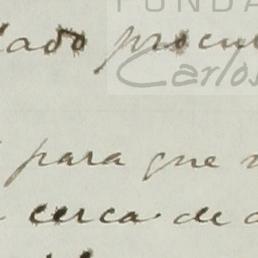 FUNDA
Carlos
lado procu
para que
cerca de